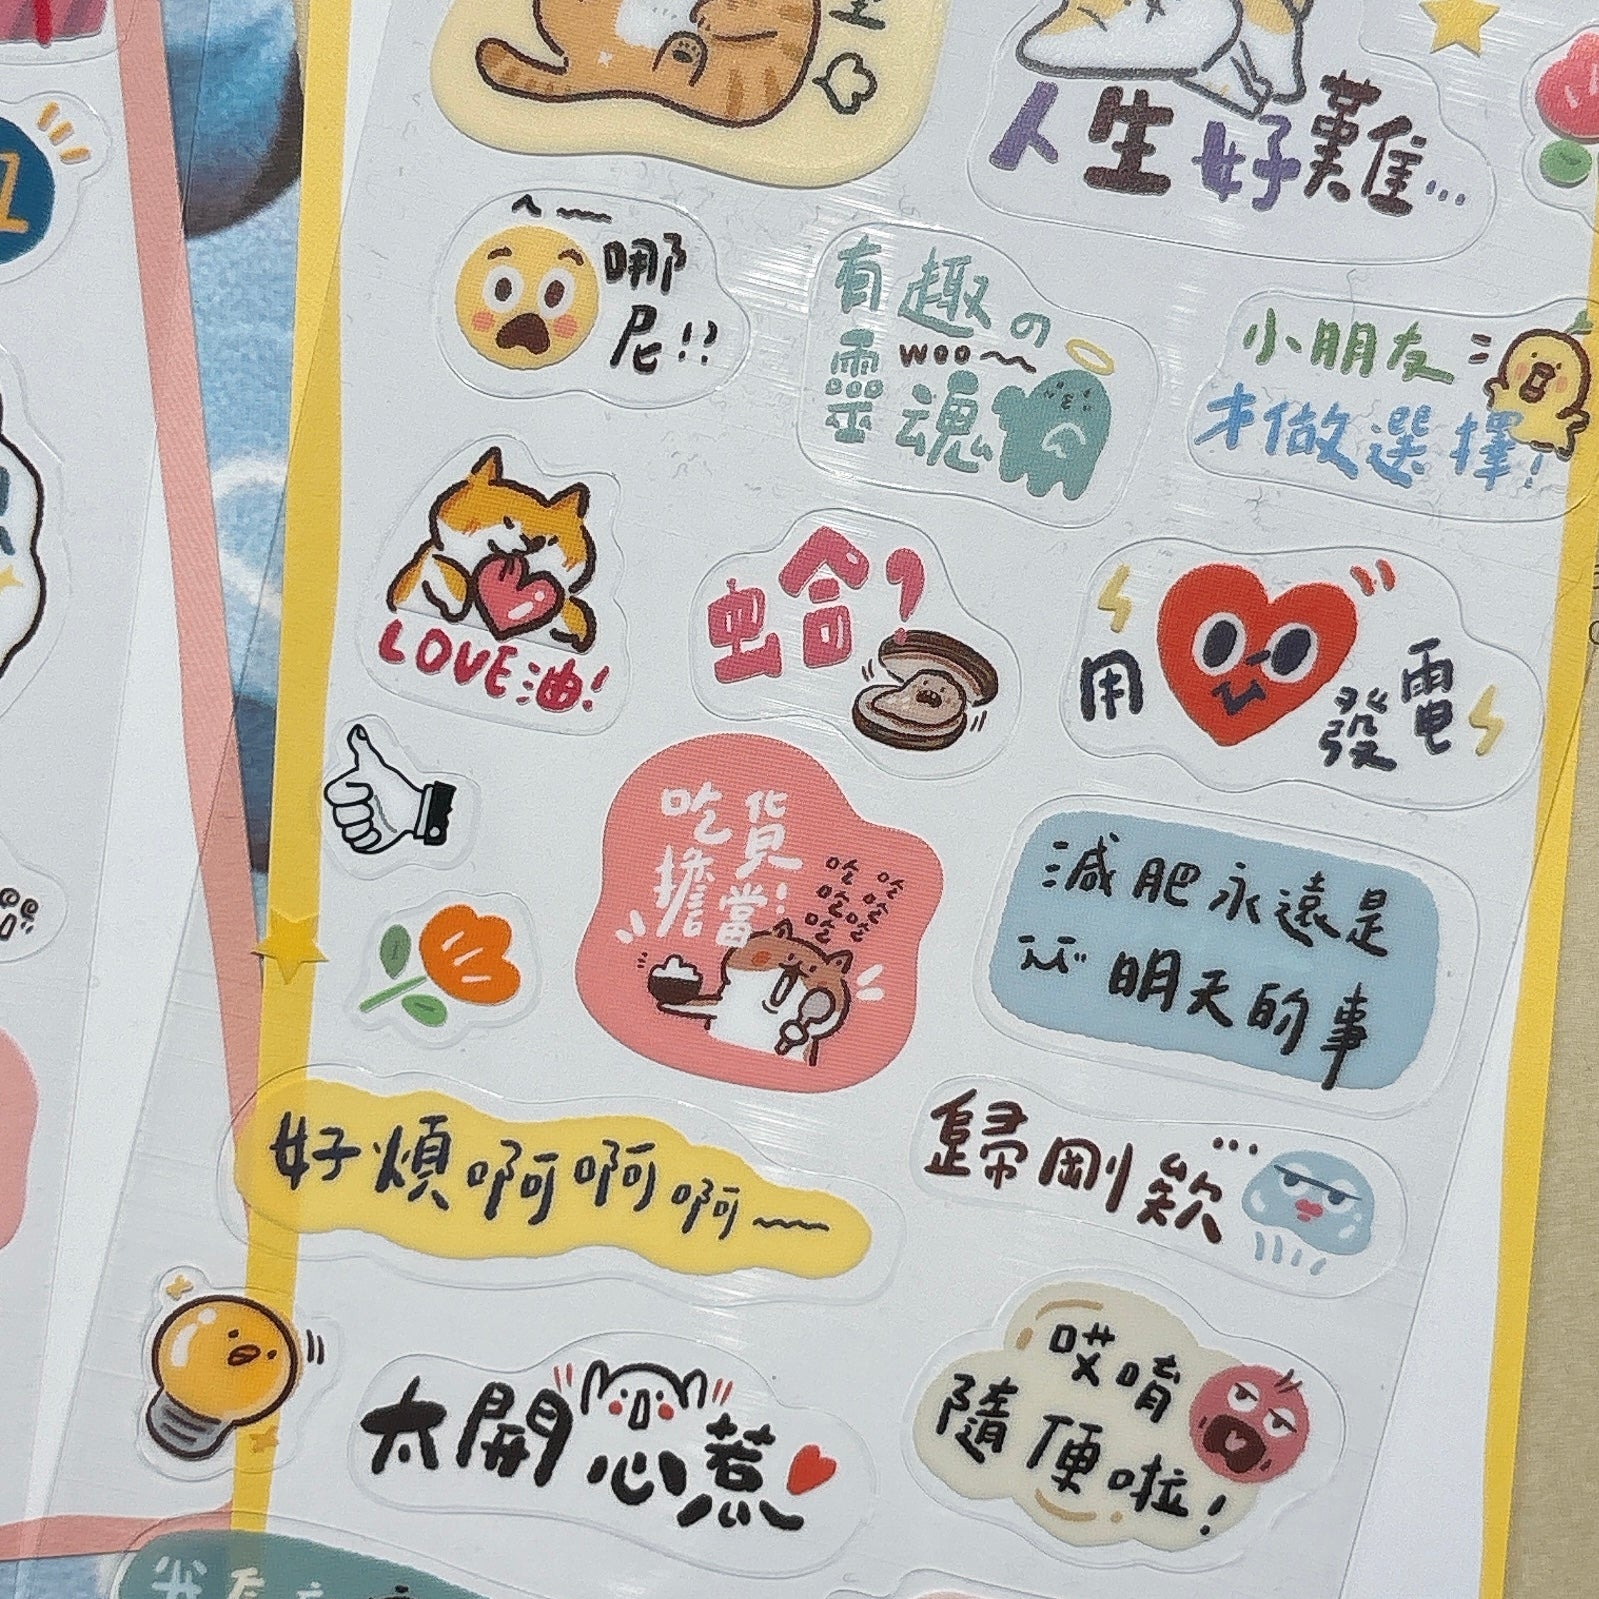 人生好難...
哪
尼!?
有趣の
woo~
靈魂
小朋友
才做選擇!
LOVE油!
蛤?
用
發電
吃貨
擔當!
吃 吃
吃 吃
吃 吃
減肥永遠是
明天的事
好煩啊啊啊~
歸剛欸
...
太開心惹
哎唷
隨便啦!